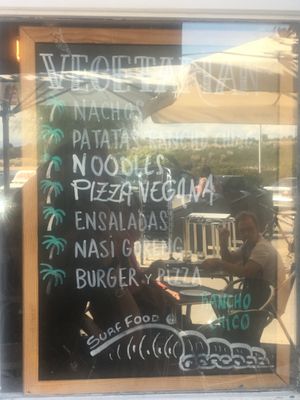 VEGETARIAN
NACHOS
PATATAS RANCHO CHICO
NOODLES
PIZZA VEGANA
ENSALADAS
NASI GORENG
BURGER y PIZZA
RANCHO
CHICO
SURF FOOD